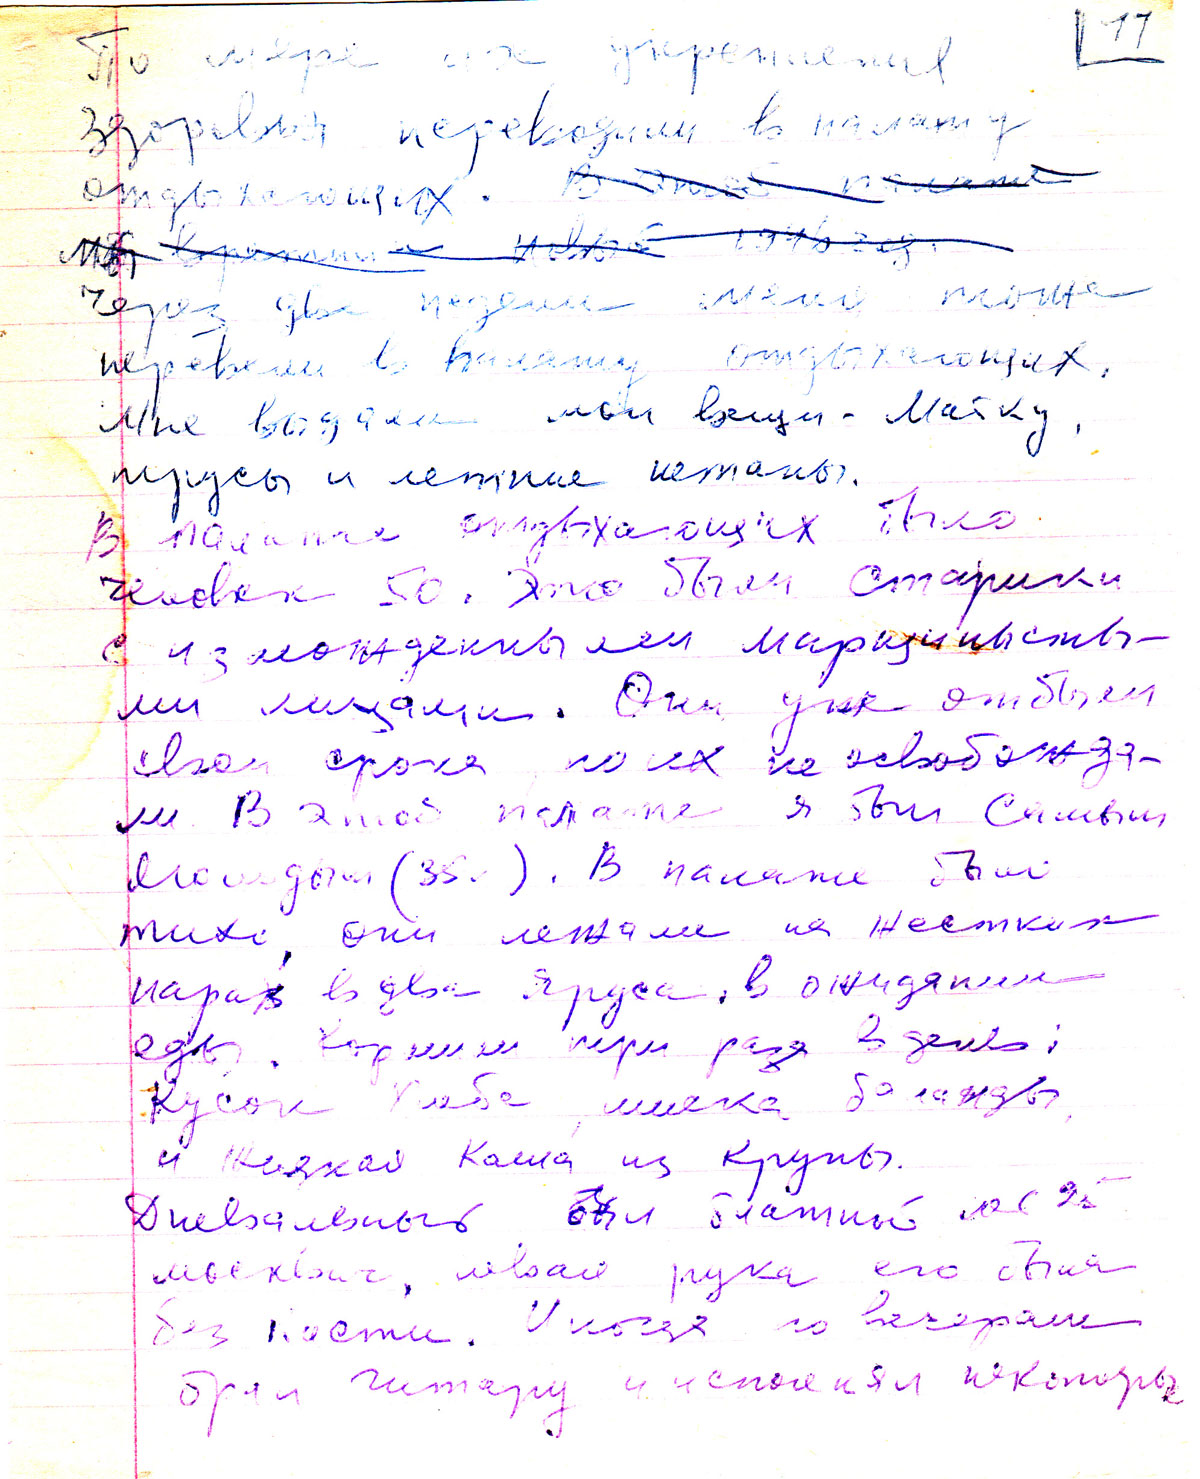 17
По мере их укрепления
здоровья переводили в палату
отдыхающих. В этой палате
мы встретили новый 1946 год.
Через две недели меня тоже
перевели в палату отдыхающих.
Мне выдали мои вещи - Майку,
трусы и летние штаны.
В палате отдыхающих было
человек 50. Это были старики
с изможденными марщинисты-
ми лицами. Они уже отбыли
свои срока, но их не освобожда-
ли. В этой палате я был самым
молодым (35 л). В палате было
тихо, они лежали на жестких
нарах в два яруса, в ожидании
еды. Кормили три раза в день:
Кусок хлеба, миска баланды,
и жидкая каша из крупы.
Дневальный был блатный лет 25
москвич, левая рука его была
без кости. Иногда по вечерам
брал гитару и исполнял некоторые